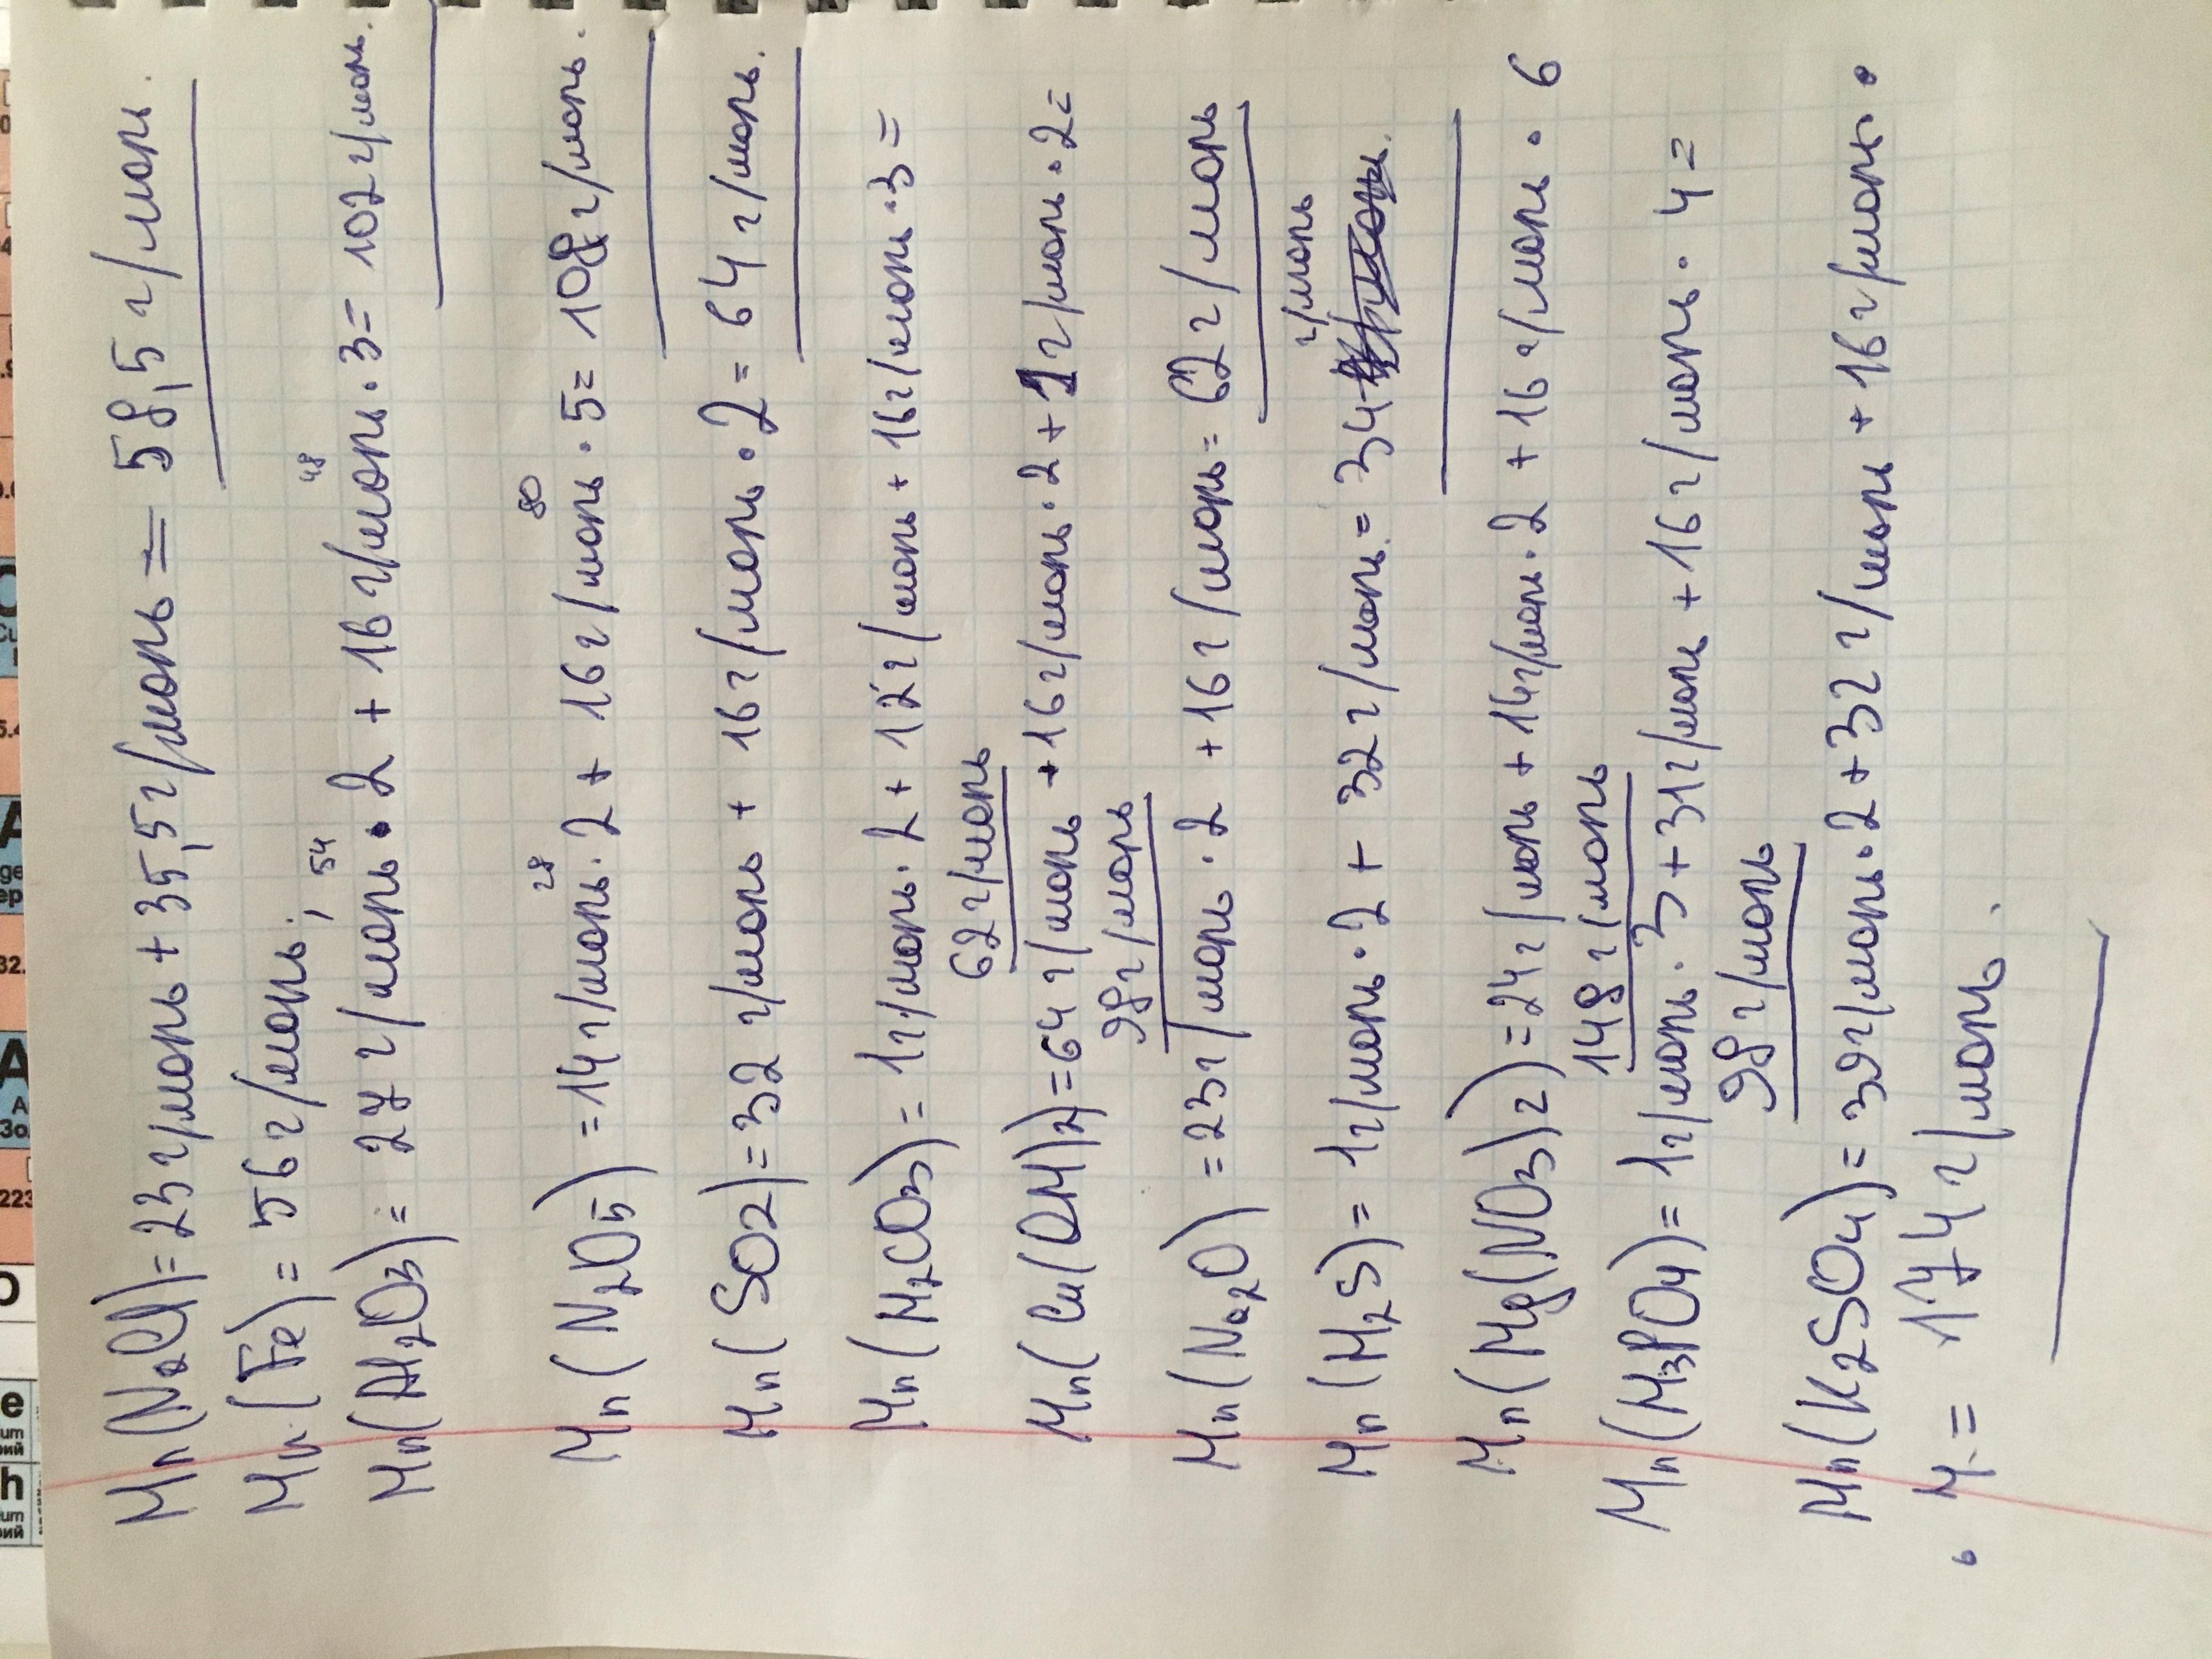 Mп(NaCl)=23г/моль+35,5г/моль=58,5 г/моль.
Mп(Fe)=56г/моль;
54 48
Mп(Al2O3)=27г/моль·2+16г/моль·3=102г/моль.
28 80
Mп(N2O5)=14г/моль·2+16г/моль·5=108г/моль.
Mп(SO2)=32г/моль+16г/моль·2=64г/моль.
Mп(H2CO3)=1г/моль·2+12г/моль+16г/моль·3=
62г/моль
Mп(Cu(OH)2)=64г/моль+16г/моль·2+1г/моль·2=
98г/моль
Mп(Na2O)=23г/моль·2+16г/моль=62г/моль
г/моль
Mп(H2S)=1г/моль·2+32г/моль=34
Mп(Mg(NO3)2)=24г/моль+14г/моль·2+16г/моль·6
148г/моль
Mп(H3PO4)=1г/моль·3+31г/моль+16г/моль·4=
98г/моль
Mп(K2SO4)=39г/моль·2+32г/моль+16г/моль·
·4=174г/моль.